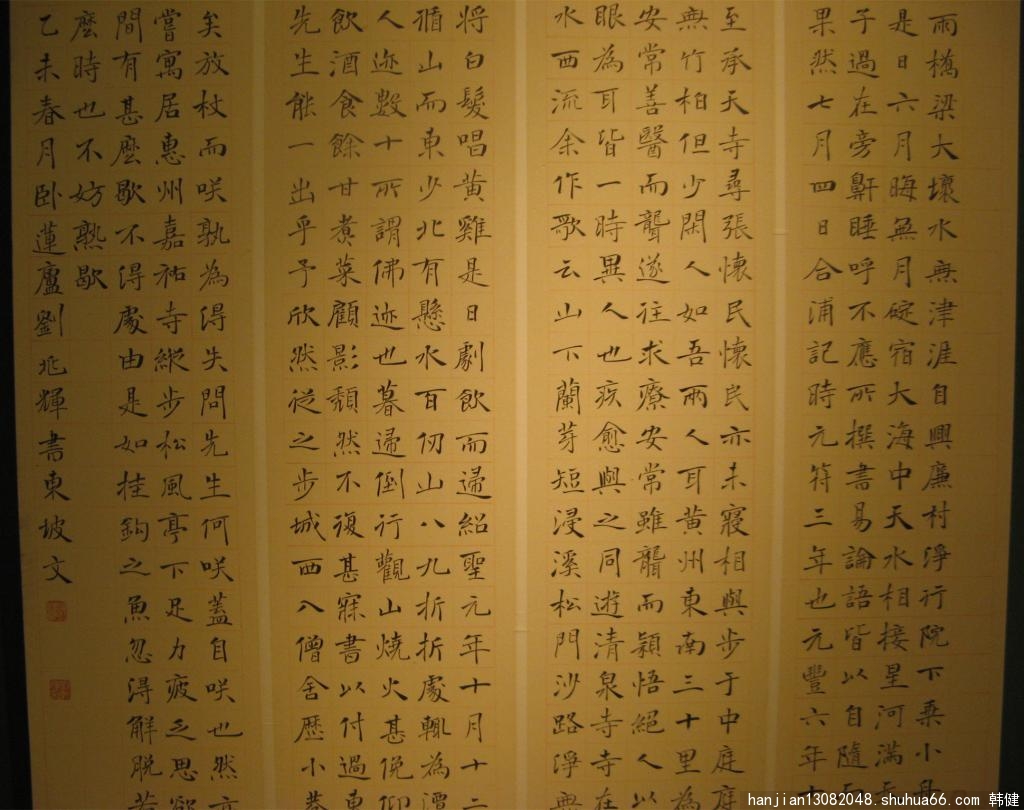 雨橋梁大壞水無津涯自興廉村淨行院下乘小舟
是日六月晦無月碇宿大海中天水相接星河滿天
子過在旁鼾睡呼不應所撰書易論語皆以自隨而
果然七月四日合浦記時元符三年也元豐六年十
至承天寺尋張懷民懷民亦未寢相與步于中庭庭
無竹柏但少閑人如吾兩人耳黃州東南三十里為
安常善醫而聾遂往求療安常雖聾而穎悟絕人以
眼為耳皆一時異人也疾愈與之同遊清泉寺寺在
水西流余作歌云山下蘭芽短浸溪松門沙路淨無
將白髮唱黃雞是日劇飲而歸紹聖元年十月十二
循山而東少北有懸水百仞山八九折折處輒為潭
人迹數十所謂佛迹也暮歸倒行觀山燒火甚俛仰
飲酒食餘甘煮菜顧影頹然不復甚寐書以付過東
先生能一出乎予欣然從之步城西入僧舍歷小巷
矣放杖而咲孰為得失問先生何咲蓋自咲也然亦
嘗寓居惠州嘉祐寺縱步松風亭下足力疲乏思欲
間有甚麼歇不得處由是如挂鉤之魚忽得解脫若
麼時也不妨熟歇
乙未春月臥蓮廬劉兆輝書東坡文
hanjian13082048, shuhua66.com 韩健